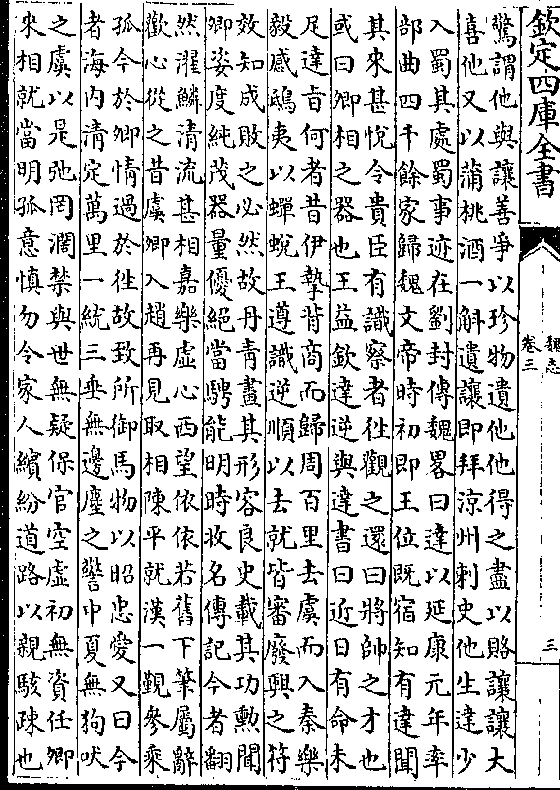 欽定四庫全書
魏志
卷三
三
驚謂他與讓善爭以珍物遺他他得之盡以賂讓讓大
喜他又以蒲桃酒一斛遺讓即拜涼州刺史他生達少
入蜀其處蜀事迹在劉封傳魏畧曰達以延康元年率
部曲四千餘家歸魏文帝時初即王位既宿知有達聞
其來甚悅令貴臣有識察者往觀之還曰將帥之才也
或曰卿相之器也王益欽達逆與達書曰近日有命未
足達旨何者昔伊摯背商而歸周百里去虞而入秦樂
毅感鴟夷以蟬蛻王遵識逆順以去就皆審廢興之符
效知成敗之必然故丹青畫其形容良史載其功勲聞
卿姿度純茂器量優絕當騁能明時收名傳記今者翻
然濯鱗清流甚相嘉樂虛心西望依依若舊下筆屬辭
歡心從之昔虞卿入趙再見取相陳平就漢一覲參乘
孤今於卿情過於往故致所御馬物以昭忠愛又曰今
者海内清定萬里一統三垂無邊塵之警中夏無狗吠
之虞以是弛罔濶禁與世無疑保官空虛初無資任卿
來相就當明孤意慎勿令家人繽紛道路以親駭疎也